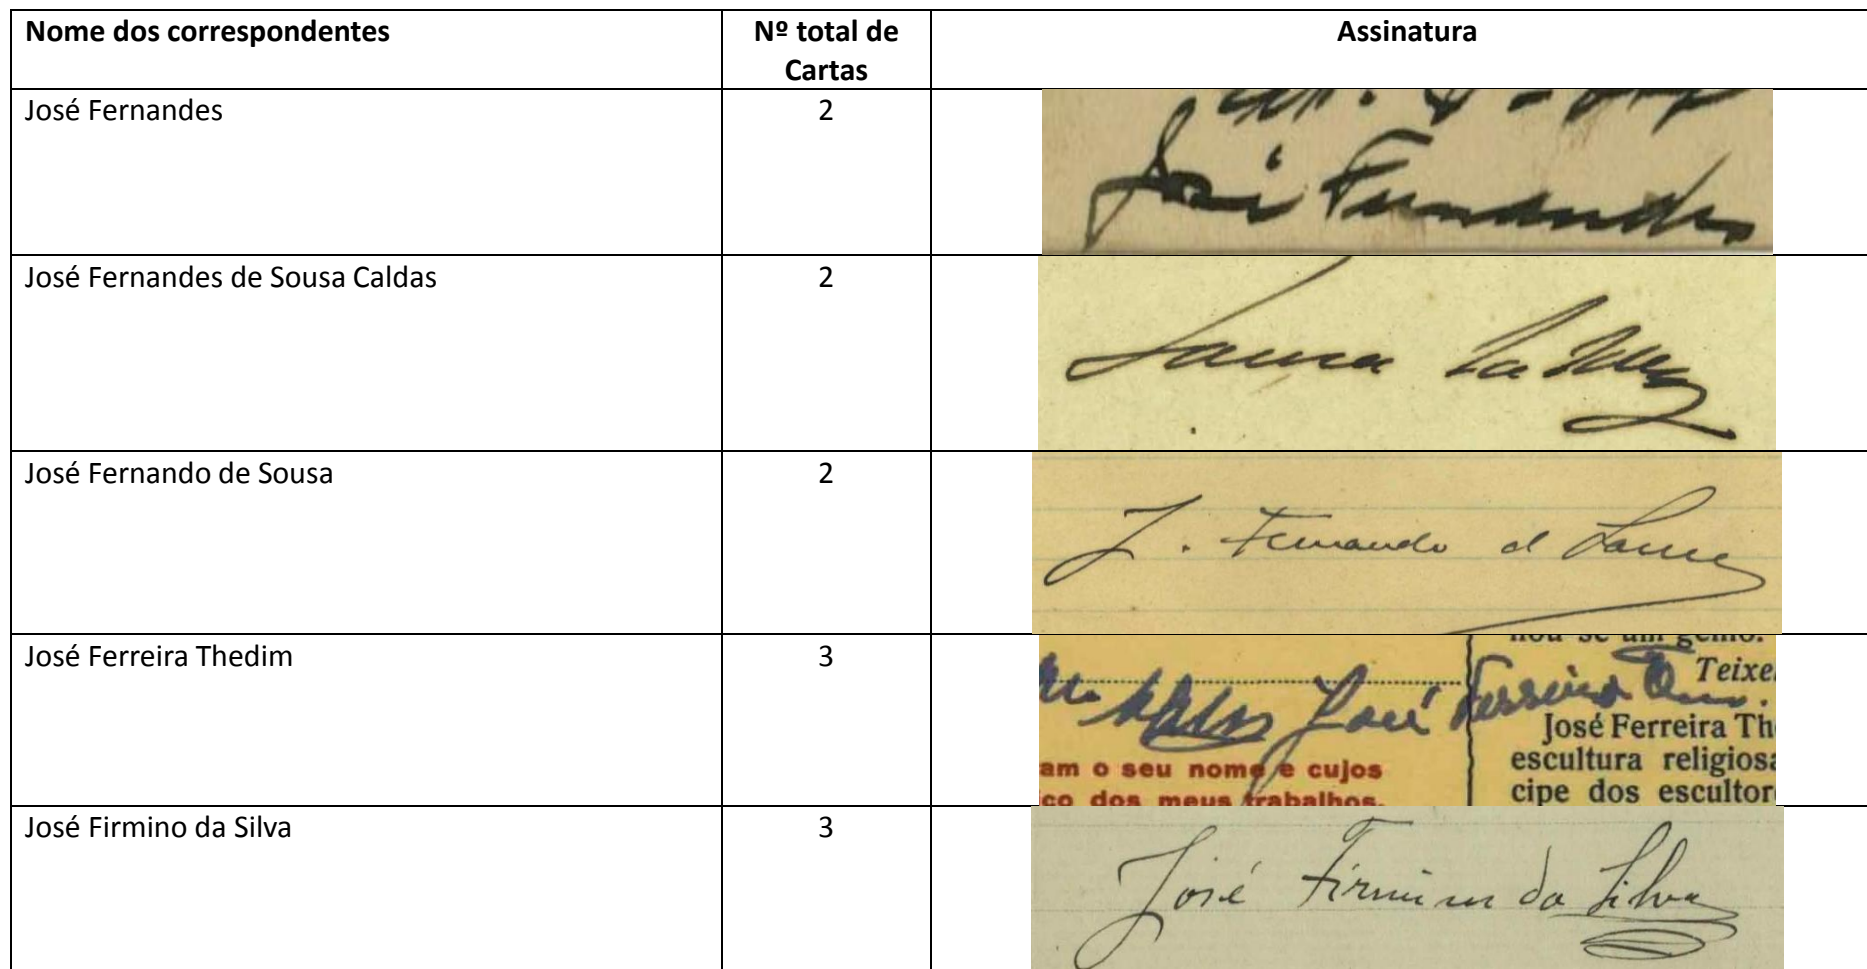 Nome dos correspondentes
Nº total de
Cartas
Assinatura
José Fernandes
2
José Fernandes
José Fernandes de Sousa Caldas
2
Sousa Caldas
José Fernando de Sousa
2
J. Fernando de Sousa
José Ferreira Thedim
3
nou-se um genio.
Teixe
José Ferreira
José Ferreira Th
escultura religiosa
am o seu nome e cujos
cipe dos escultor
ico dos meus trabalhos.
José Firmino da Silva
3
José Firmino da Silva